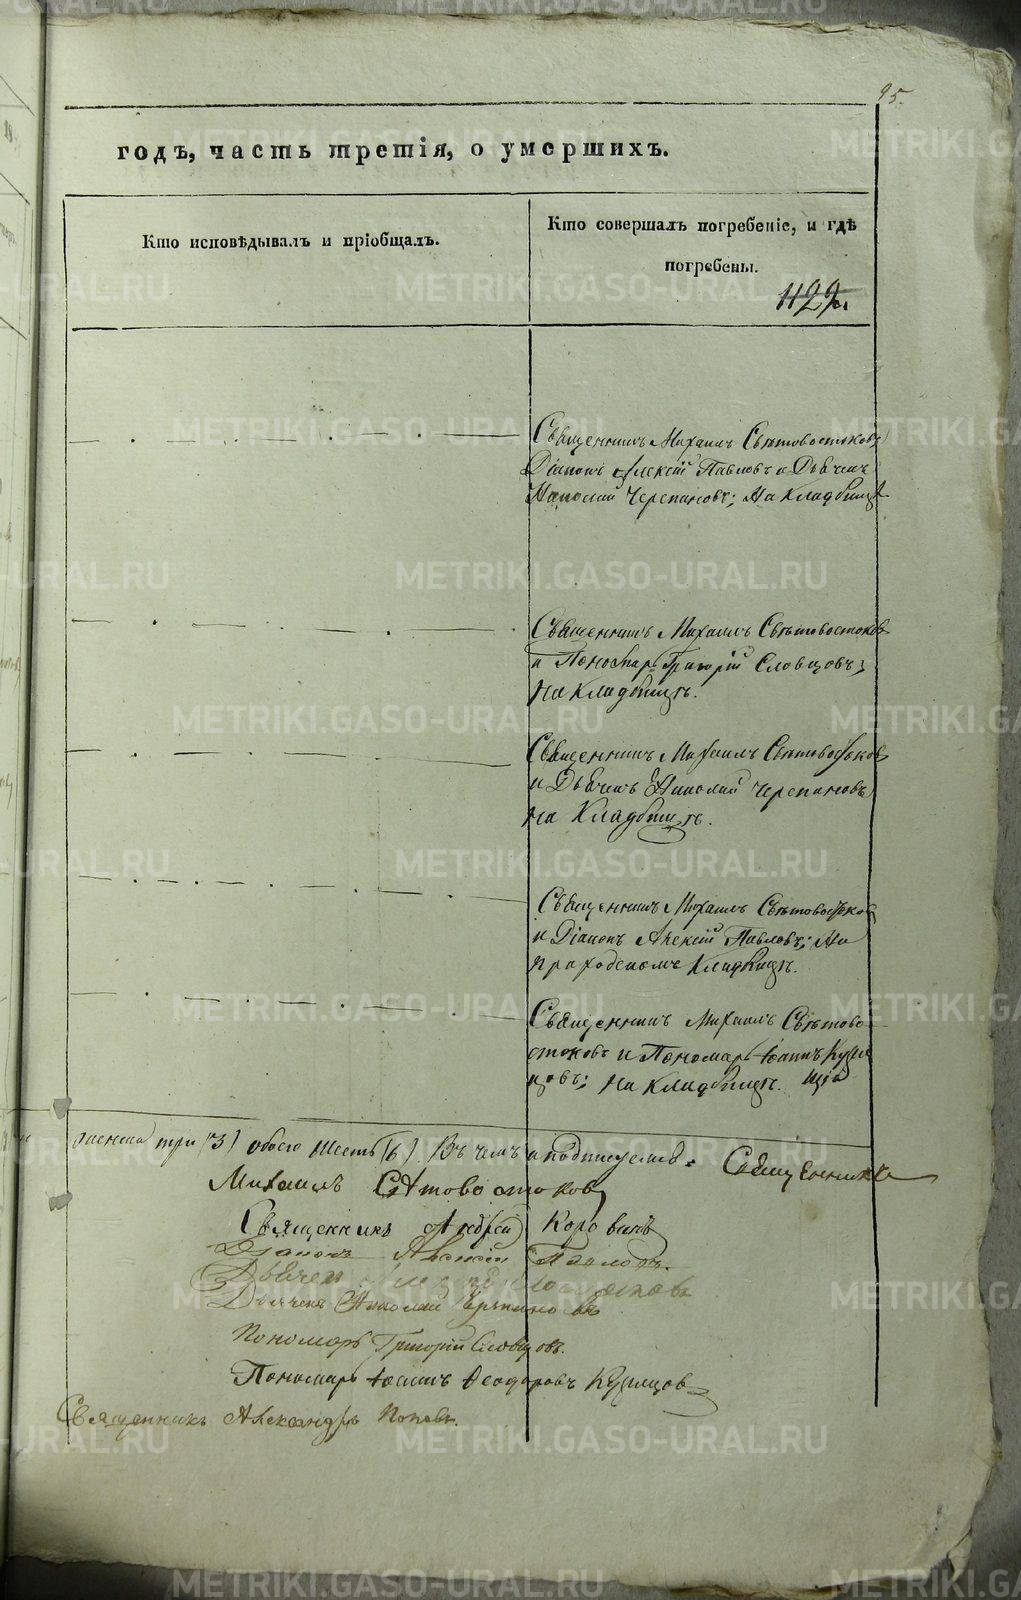 95.
годъ, часть третія, о умершихъ.
Кто исповѣдывалъ и пріобщалъ.
Кто совершалъ погребеніе, и гдѣ
погребены.
Священникъ Михаилъ Свѣтовостоковъ
Діаконъ Алексій Павловъ и Дьячекъ
Николай Черепановъ; На Кладбищѣ
Священникъ Михаилъ Свѣтовостоковъ
и Пономарь Григорій Словцовъ;
На Кладбищѣ.
Священникъ Михаилъ Свѣтовостоковъ
и Дьячекъ Николай Черепановъ
На Кладбищѣ.
Священникъ Михаилъ Свѣтовостоковъ
и Діаконъ Алексій Павловъ; На
приходскомъ Кладбищѣ.
Священникъ Михаилъ Свѣтово-
стоковъ и Пономарь Іоаннъ Кузне
цовъ; На Кладбищѣ.
три (3) обоего шесть (6). Въ чемъ и подписуемся. Священникъ
Михаилъ Свѣтовостоковъ
Священникъ Андрей Коровинъ
Діаконъ Алексій Павловъ.
Дьячекъ
Дьячекъ Николай Черепановъ
Пономарь Григорій Словцовъ.
Пономарь Іоаннъ Ѳеодоровъ Кузнецовъ
Священникъ Александръ Поповъ.
METRIKI.GASO-URAL.RU